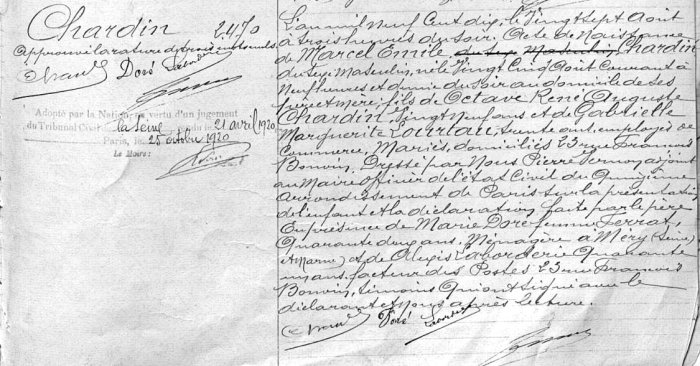 Chardin
2470
Approuvé la rature de trois mots nuls
Doré
Adopté par la Nation en vertu d'un jugement
du Tribunal Civil de la Seine 21 avril 1920
Paris, le 25 octobre 1920
Le Maire:
L'an mil neuf cent dix, le Vingt sept Août
à trois heures du soir. Acte de Naissance
de Marcel Emile du sexe Masculin, Chardin
du sexe Masculin, né le Vingt Cinq Août courant à
Neuf heures et demie du soir au domicile de ses
père et mère, fils de Octave René Auguste
Chardin, Vingt neuf ans et de Gabrielle
Marguerite Lourtau, trente ans, employés de
Commerce, Mariés, domiciliés 23 rue François
Bonvin, Dressé par Nous Pierre adjoint
au Maire officier de l'état Civil du Quinzième
arrondissement de Paris sur la présentation
de l'enfant et la déclaration faite par le père
En présence de Marie Doré femme Ferrat,
Quarante deux ans, Ménagère à Méry (Seine
et Marne) et de Alexis Laborderie Quarante
ans, facteur des Postes 23 rue François
Bonvin, témoins Qui ont signé avec le
déclarant et Nous après lecture.
Doré